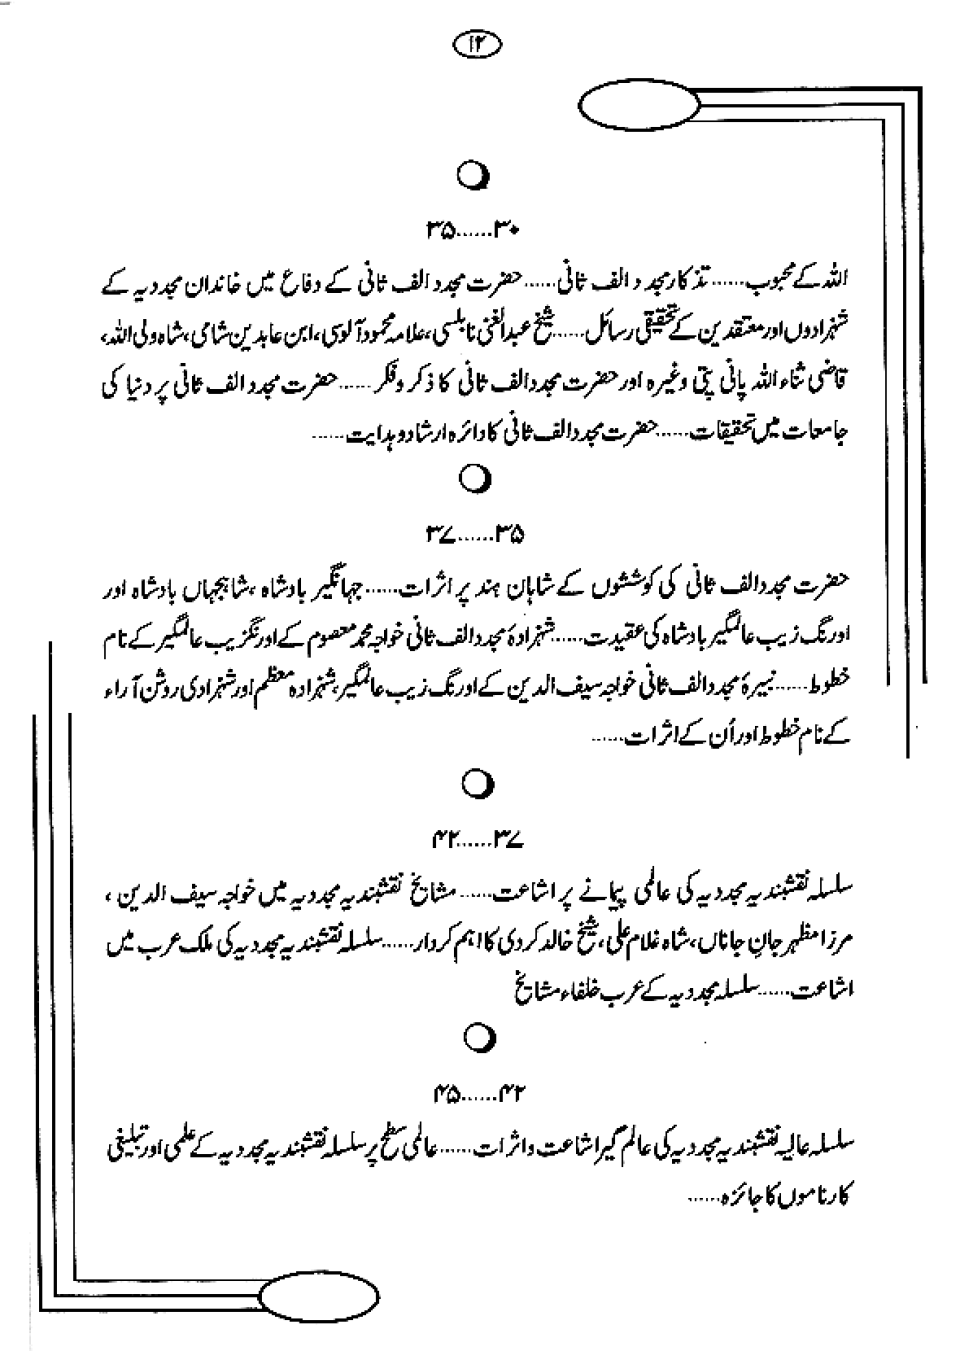 ۱۲
۳۰......۳۵
اللہ کے محبوب...... تذکار مجدد الف ثانی...... حضرت مجدد الف ثانی کے دفاع میں خاندان مجددیہ کے
شہزادوں اور معتقدین کے تحقیقی رسائل...... شیخ عبدالغنی نابلسی، علامہ محمود آلوسی، ابن عابدین شامی، شاہ ولی اللہ،
قاضی ثناء اللہ پانی پتی وغیرہ اور حضرت مجدد الف ثانی کا ذکر و فکر...... حضرت مجدد الف ثانی پر دنیا کی
جامعات میں تحقیقات...... حضرت مجدد الف ثانی کا دائرہ ارشاد و ہدایت......
۳۵......۳۷
حضرت مجدد الف ثانی کی کوششوں کے شاہان ہند پر اثرات...... جہانگیر بادشاہ، شاہجہاں بادشاہ اور
اورنگ زیب عالمگیر بادشاہ کی عقیدت...... شہزادۂ مجدد الف ثانی خواجہ محمد معصوم کے اورنگزیب عالمگیر کے نام
خطوط...... نبیرۂ مجدد الف ثانی خواجہ سیف الدین کے اورنگ زیب عالمگیر، شہزادہ معظم اور شہزادی روشن آراء
کے نام خطوط اور اُن کے اثرات......
۳۷......۴۲
سلسلہ نقشبندیہ مجددیہ کی عالمی پیمانے پر اشاعت...... مشایخ نقشبندیہ مجددیہ میں خواجہ سیف الدین،
مرزا مظہر جانِ جاناں، شاہ غلام علی، شیخ خالد کردی کا اہم کردار...... سلسلہ نقشبندیہ مجددیہ کی ملک عرب میں
اشاعت...... سلسلہ مجددیہ کے عرب خلفاء مشایخ
۴۲......۴۵
سلسلہ عالیہ نقشبندیہ مجددیہ کی عالم گیر اشاعت و اثرات...... عالمی سطح پر سلسلہ نقشبندیہ مجددیہ کے علمی اور تبلیغی
کارناموں کا جائزہ......